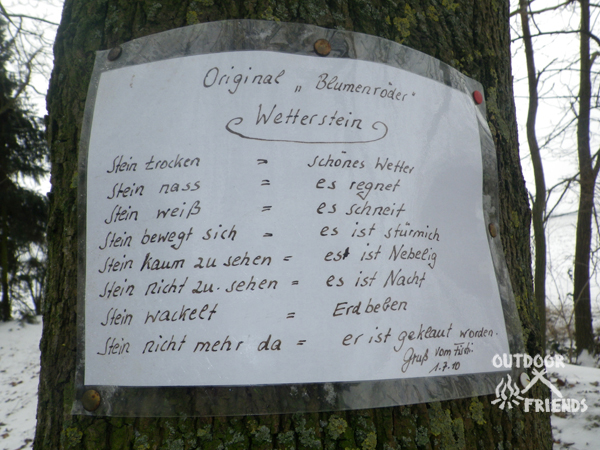 Original „Blumenröder"
Wetterstein
Stein trocken = schönes Wetter
Stein nass = es regnet
Stein weiß = es schneit
Stein bewegt sich = es ist stürmich
Stein kaum zu sehen = es ist Nebelig
Stein nicht zu sehen = es ist Nacht
Stein wackelt = Erdbeben
Stein nicht mehr da = er ist geklaut worden.
Gruß vom
1.7.10
OUTDOOR
FRIENDS